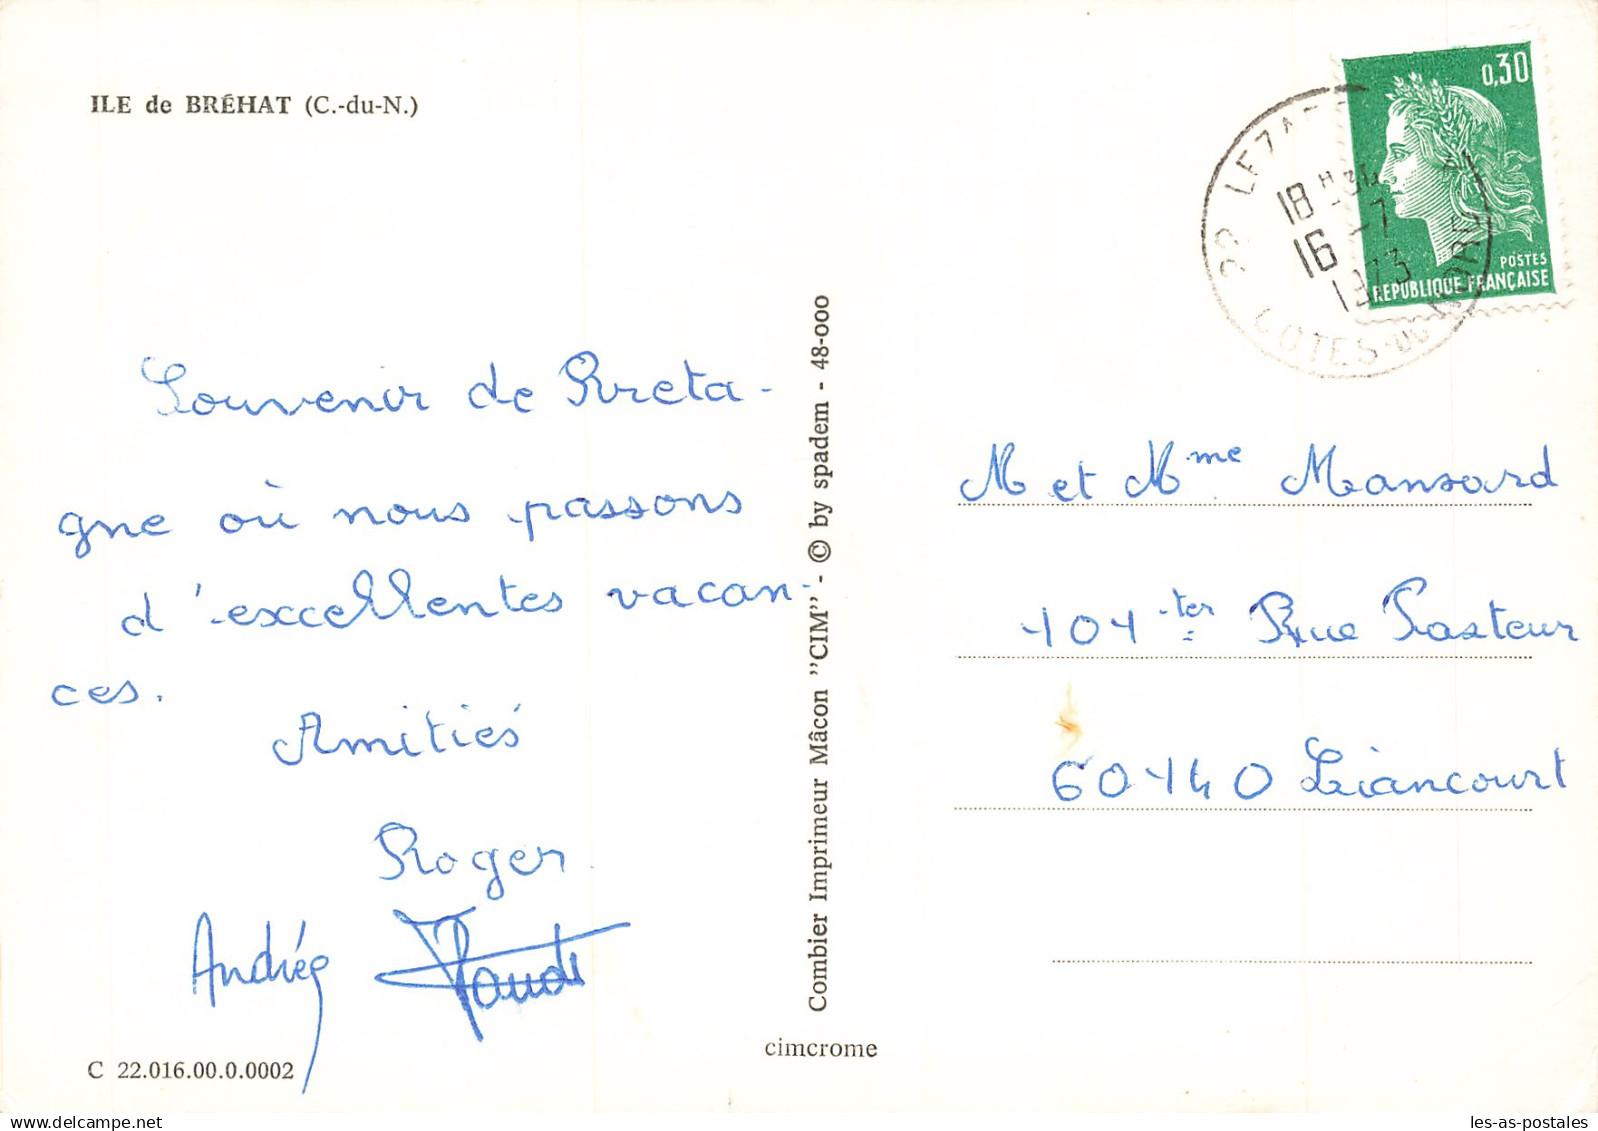 ILE de BRÉHAT (C.-du-N.)
Souvenir de Breta-
gne où nous passons
d'excellentes vacan-
ces.
Amitiés
Roger
Andrée
C 22.016.00.0.0002
Combier Imprimeur Mâcon "CIM" - © by spadem - 48-000
cimcrome
0,30
POSTES
REPUBLIQUE FRANÇAISE
18 H 34
16 -7
1973
COTES-DU-NORD
M et Mme Mansard
101 ter Rue Pasteur
60140 Liancourt
les-as-postales